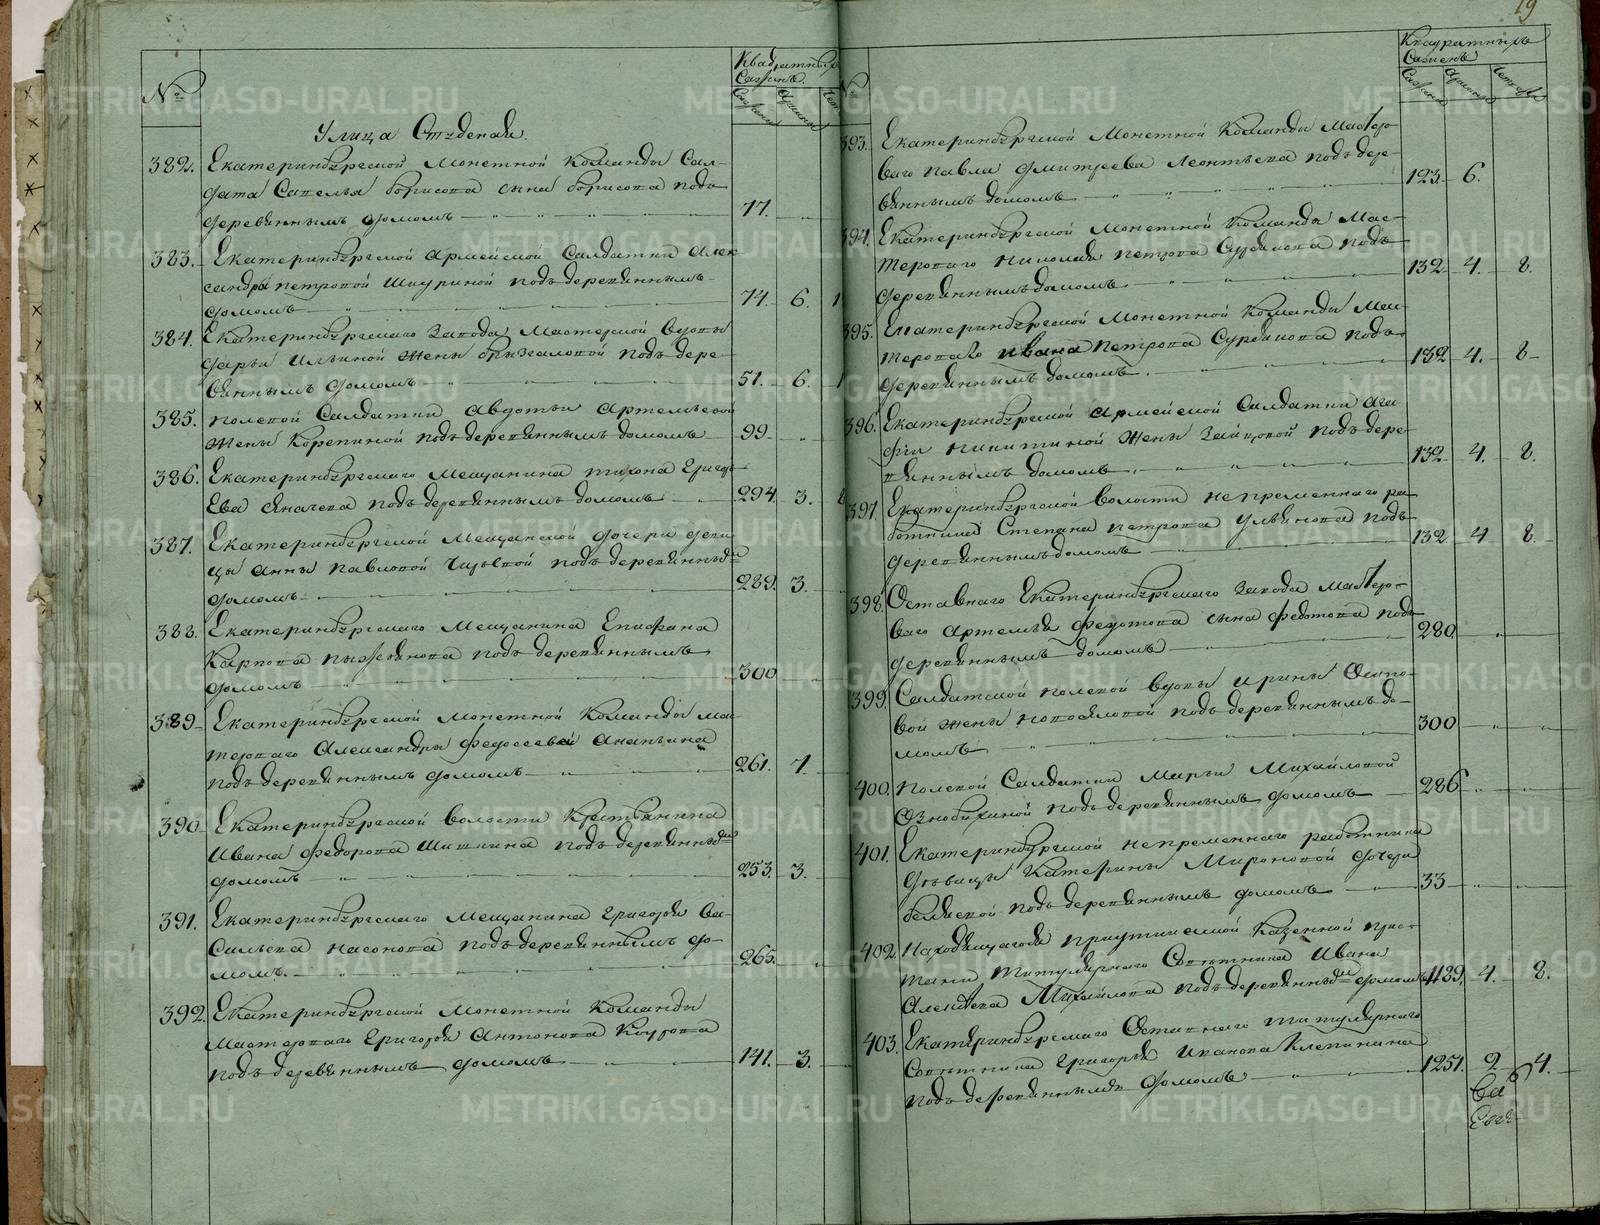 19
№
Квадратныхъ
Сажень
Сажени Аршины
Улица Студеная
382. Екатеринбургской Монетной Команды Сал-
дата Савелья Борисова сына Борисова подъ
деревяннымъ домомъ 77.
383. Екатеринбургской Армейской Салдатки Алек
сандры Петровой подъ деревяннымъ
домомъ 74. 6. 1
384. Екатеринбургскаго Завода Мастерской вдовы
Дарьи Ильиной жены Брызгаловой подъ дере
вяннымъ домомъ 51. 6. 1
385. Полевой Салдатки Авдотьи Артемьевой
жены Корепиной подъ деревяннымъ домомъ 99
386. Екатеринбургскаго Мещанина Тихона Григорь
ева подъ деревяннымъ домомъ 294. 3.
387. Екатеринбургской Мещанской дочери деви
цы Анны Павловой подъ деревянны
домомъ 289. 3.
388. Екатеринбургскаго Мещанина Епифана
Карпова подъ деревяннымъ
домомъ 300
389. Екатеринбургской Монетной Команды мас
тероваго Александры Федосеевой Ананьина
подъ деревяннымъ домомъ 261. 7.
390. Екатеринбургской волости Крестьянина
Ивана Федорова Шишкина подъ деревянны
домомъ 253. 3.
391. Екатеринбургскаго Мещанина Григорья Ва-
сильева Насонова подъ деревяннымъ до-
момъ. 265.
392. Екатеринбургской Монетной Команды
Мастероваго Григорья Антонова
подъ деревяннымъ домомъ 141. 3.
№
Квадратныхъ
Сажень
Сажени Аршины Четверти
393. Екатеринбургской Монетной Команды Мастер-
ваго Павла Дмитреева Леонтьева подъ дере
вяннымъ домомъ 123. 6.
394. Екатеринбургской Монетной Команды Мас-
тероваго Николая Петрова Сурдикова подъ
деревяннымъ домомъ 132 4. 8.
395. Екатеринбургской Монетной Команды Мас
тероваго Ивана Петрова Сурдикова подъ
деревяннымъ домомъ 132 4. 8
396. Екатеринбургской Армейской Салдатки Ага
фьи Никитиной жены Зайцовой подъ дере
вяннымъ домомъ 132 4. 8.
397. Екатеринбургской волости непременнаго ра
ботника Степана Петрова подъ
деревяннымъ домомъ 132 4 8.
398. Оставнаго Екатеринбургскаго Завода Мастер-
ваго Артемья Федотова сына Федотова подъ
деревяннымъ домомъ 280
399. Салдатской полевой вдовы Ирины Осипо-
вой жены Новоселовой подъ деревяннымъ до-
момъ 300
400. Полевой Салдатки Марьи Михайловой
Ознобихиной подъ деревяннымъ домомъ 286
401. Екатеринбургской непременнаго работника
девицы Катерины Мироновой дочери
подъ деревяннымъ домомъ 33
402. Находящагося при Казенной прис-
тани Титулярнаго Советника Ивана
Алексеева Михайлова подъ деревянны домомъ 1139. 4. 8.
403. Екатеринбургскаго Оставнаго титулярнаго
Советника Григорья Иванова Клепинина
подъ деревяннымъ домомъ 1251. 2. 4.